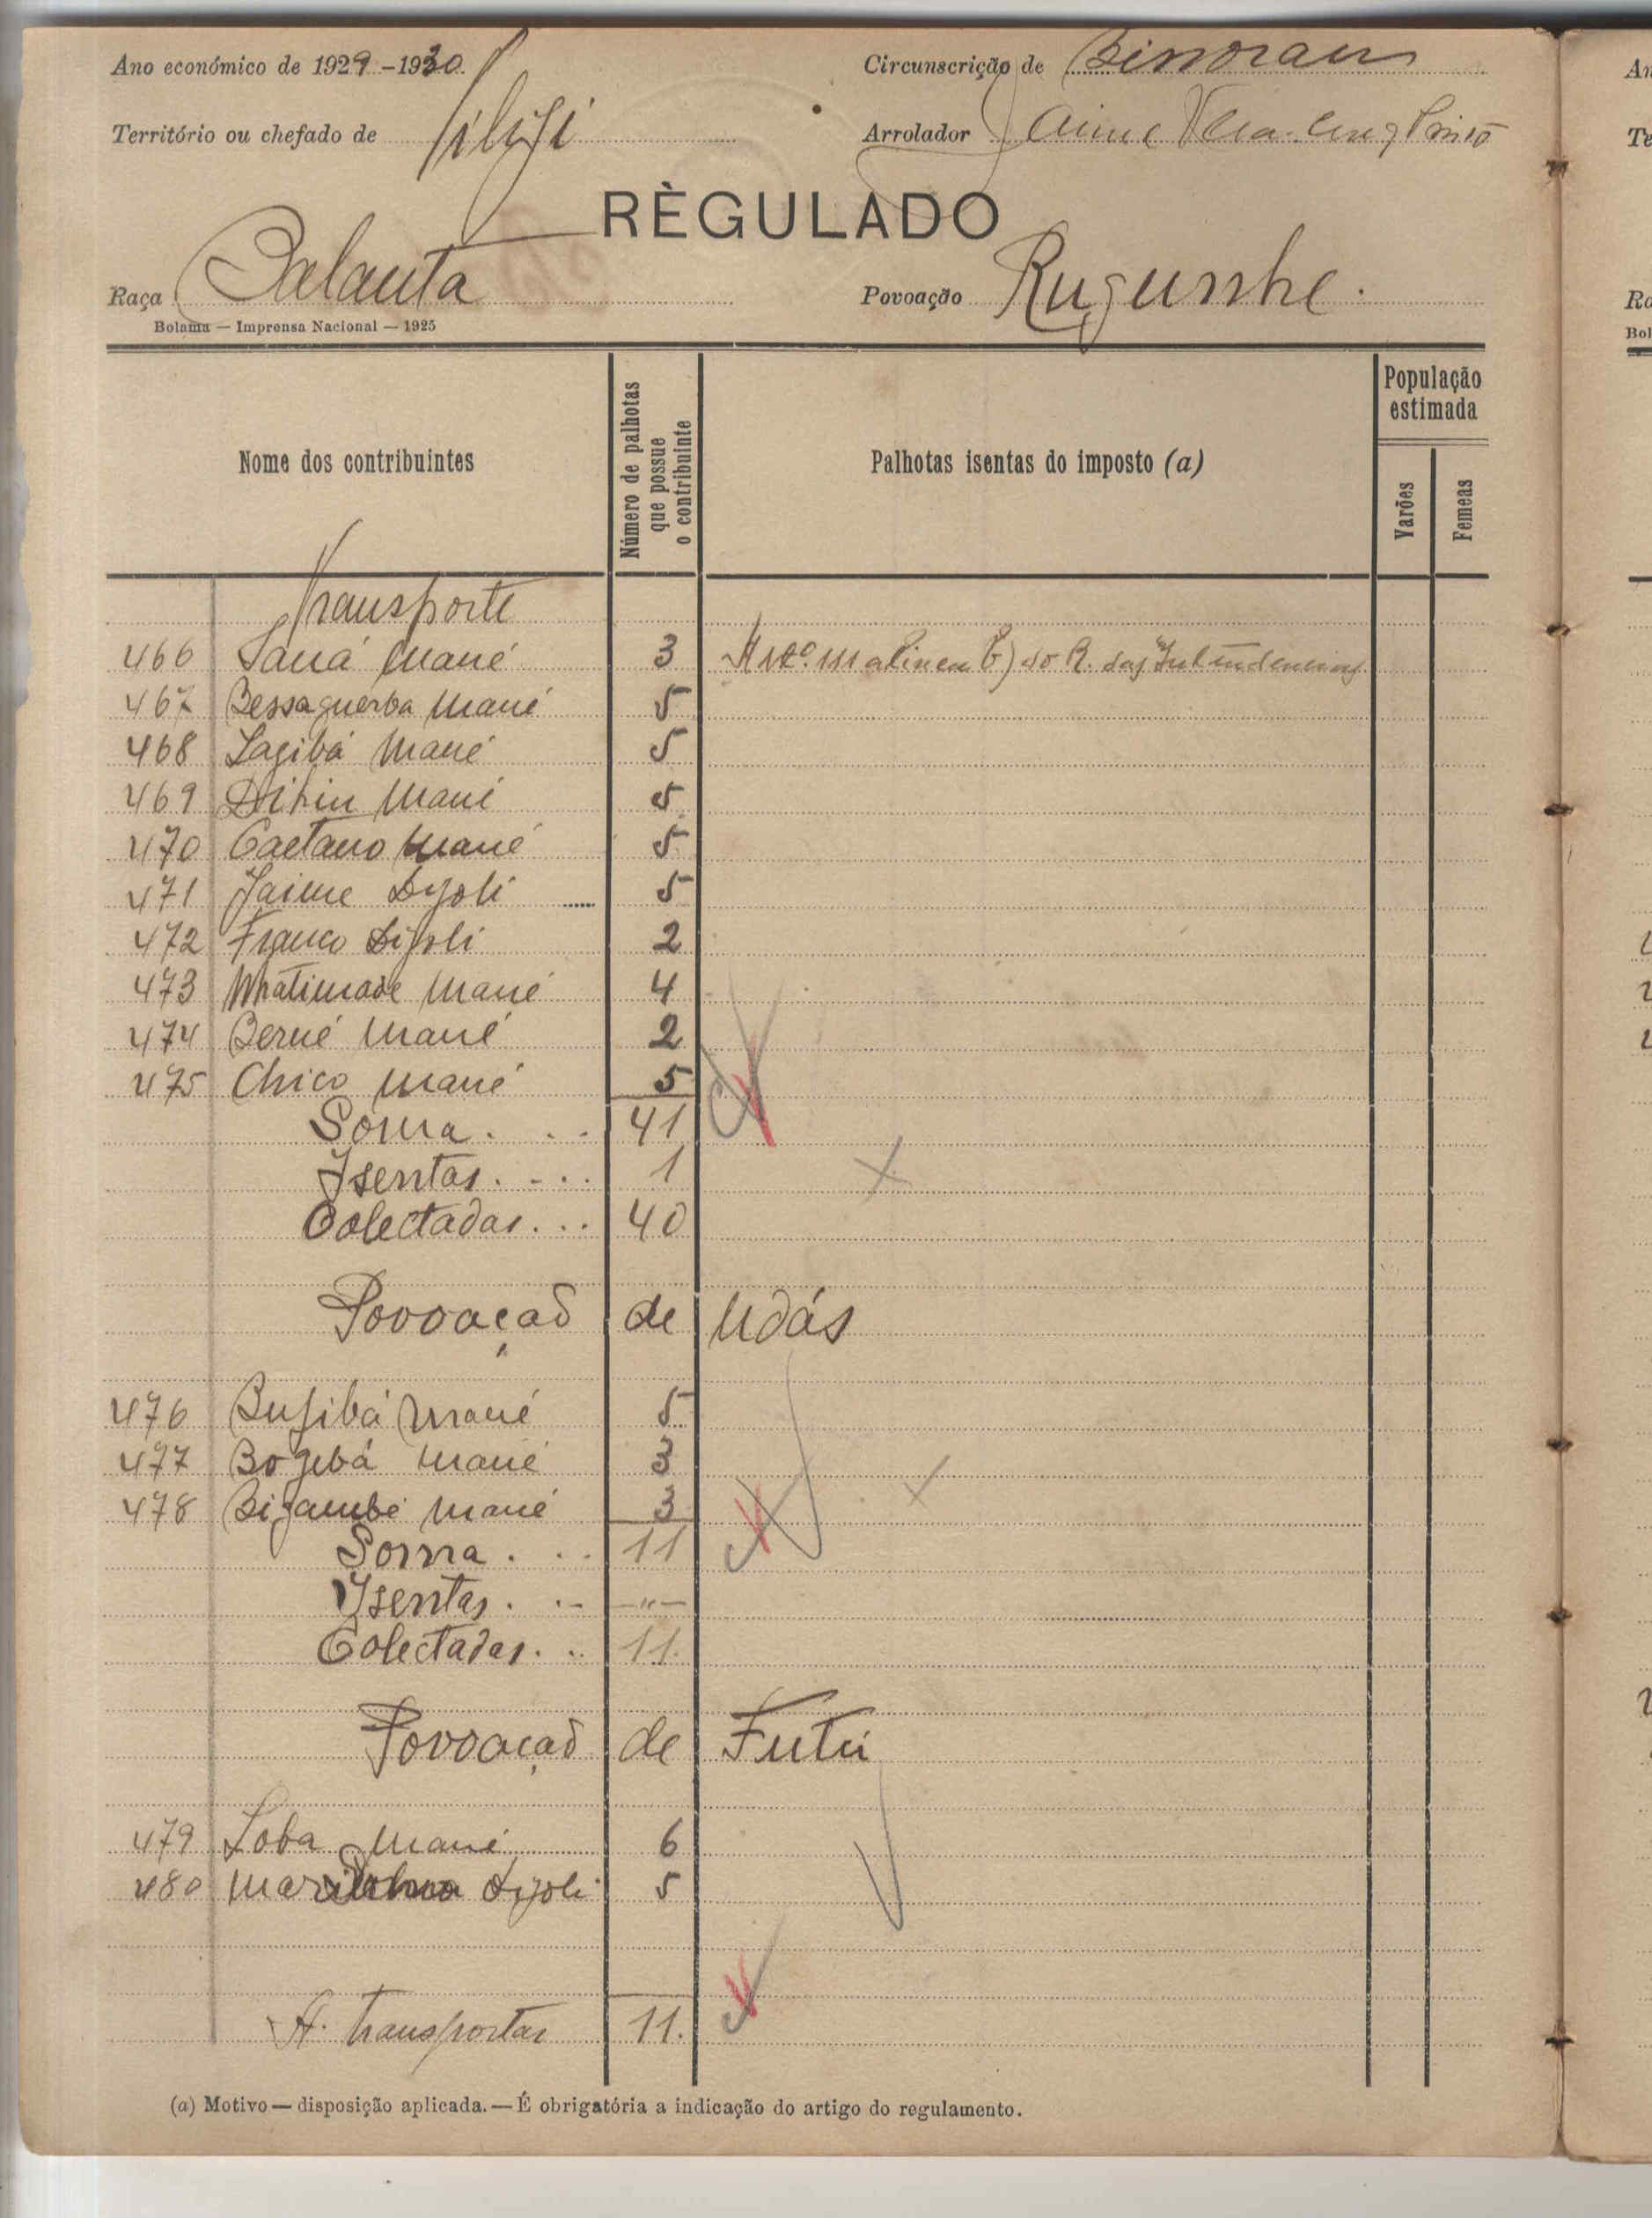 Ano económico de 1929-1930
Circunscrição de Bissorau
Território ou chefado de
Arrolador Jaime
RÈGULADO
Raça Balanta
Povoação Rugunshe.
Bolama — Imprensa Nacional — 1925
Nome dos contribuintes
Número de palhotas que possue o contribuinte
Palhotas isentas do imposto (a)
População estimada
Varões
Femeas
Transporte
466 Saná Mané 3 do R. das Intendencias
467 Bessaguerba Mané 5
468 Lagibá Mané 5
469 Mané 5
470 Caetano Mané 5
471 Jaime Djoli 5
472 Franco Djoli 2
473 Mané 4
474 Berné Mané 2
475 Chico Mané 5
Soma. . . 41
Isentas. - . . 1
Colectadas. . . 40
Povoação de Udás
476 Bufibá Mané 5
477 Bogebá Mané 3
478 Bijambé Mané 3
Soma . . . 11
Isentas. . - — " —
Colectadas. . . 11.
Povoação de Futú
479 Loba Mané 6
480 Djoli 5
A transportar 11.
(a) Motivo — disposição aplicada. — É obrigatória a indicação do artigo do regulamento.